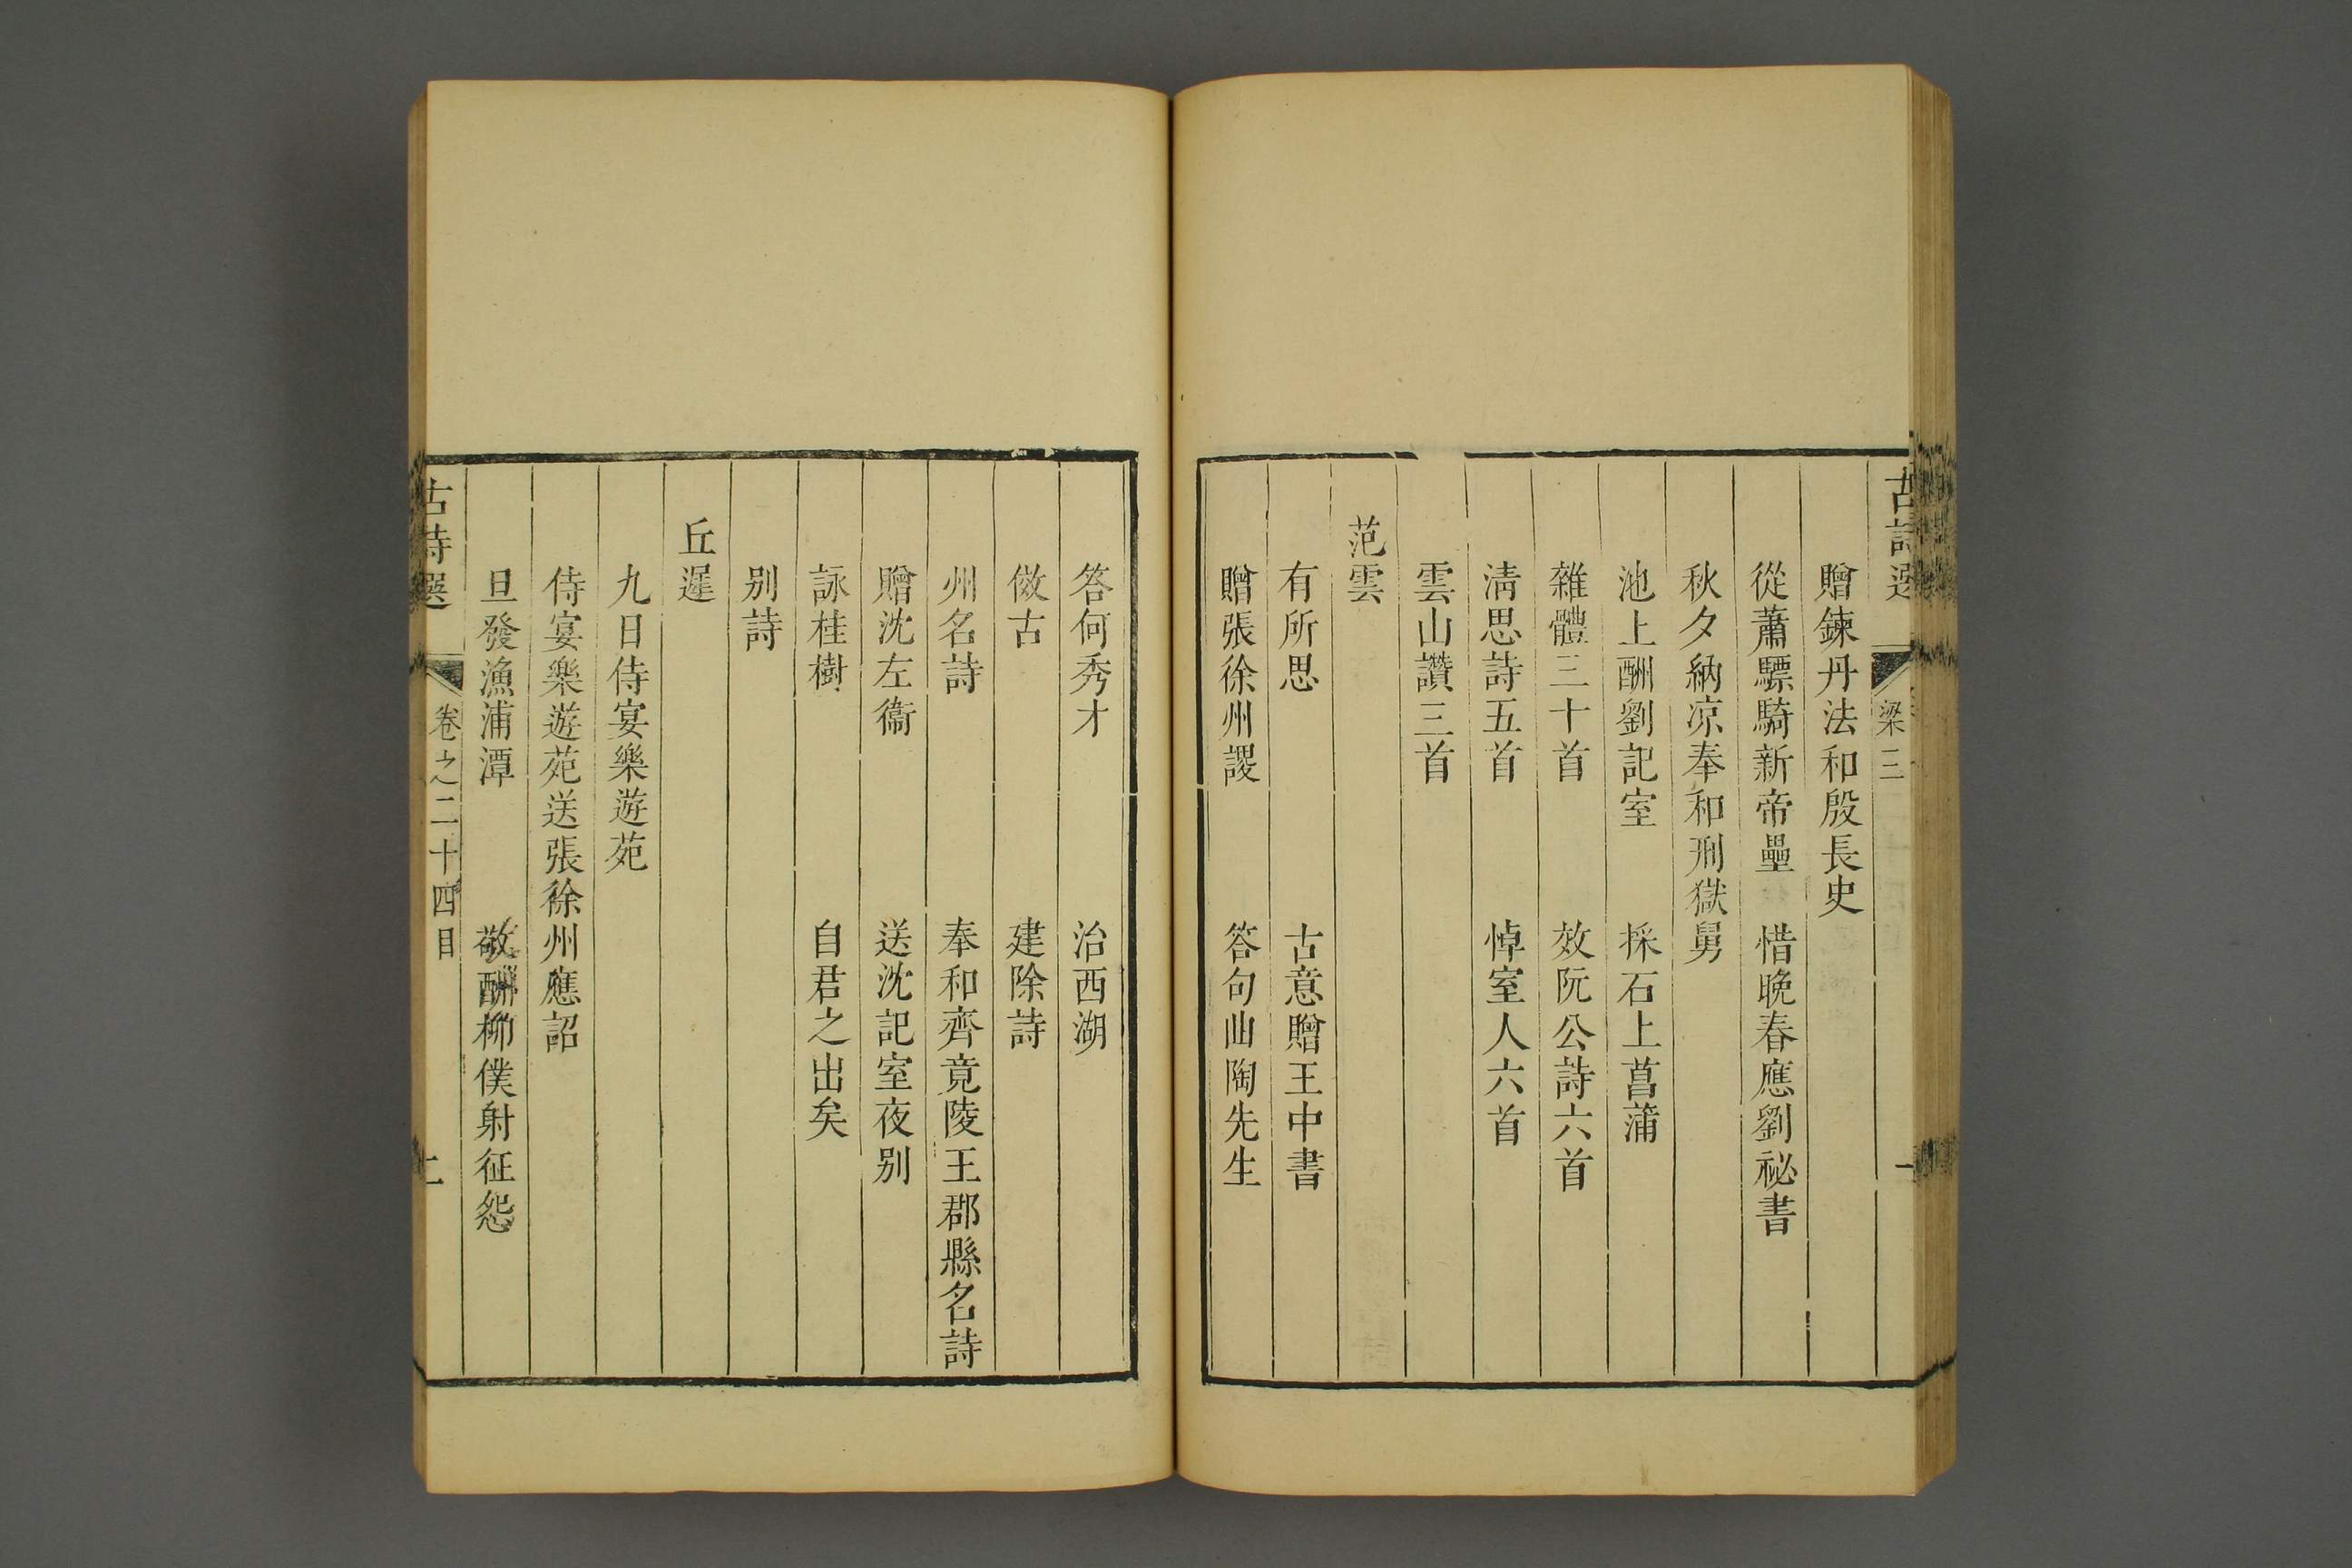 古詩選 梁三 一
贈鍊丹法和殷長史
從蕭驃騎新帝壘 惜晚春應劉祕書
秋夕納凉奉和刑獄舅
池上酬劉記室 採石上菖蒲
雜體三十首 效阮公詩六首
淸思詩五首 悼室人六首
雲山讚三首
范雲
有所思 古意贈王中書
贈張徐州謖 答句曲陶先生
答何秀才 治西湖
倣古 建除詩
州名詩 奉和齊竟陵王郡縣名詩
贈沈左衞 送沈記室夜别
詠桂樹 自君之出矣
别詩
丘遲
九日侍宴樂遊苑
侍宴樂遊苑送張徐州應詔
旦發漁浦潭 敬酬柳僕射征怨
古詩選 卷之二十四目